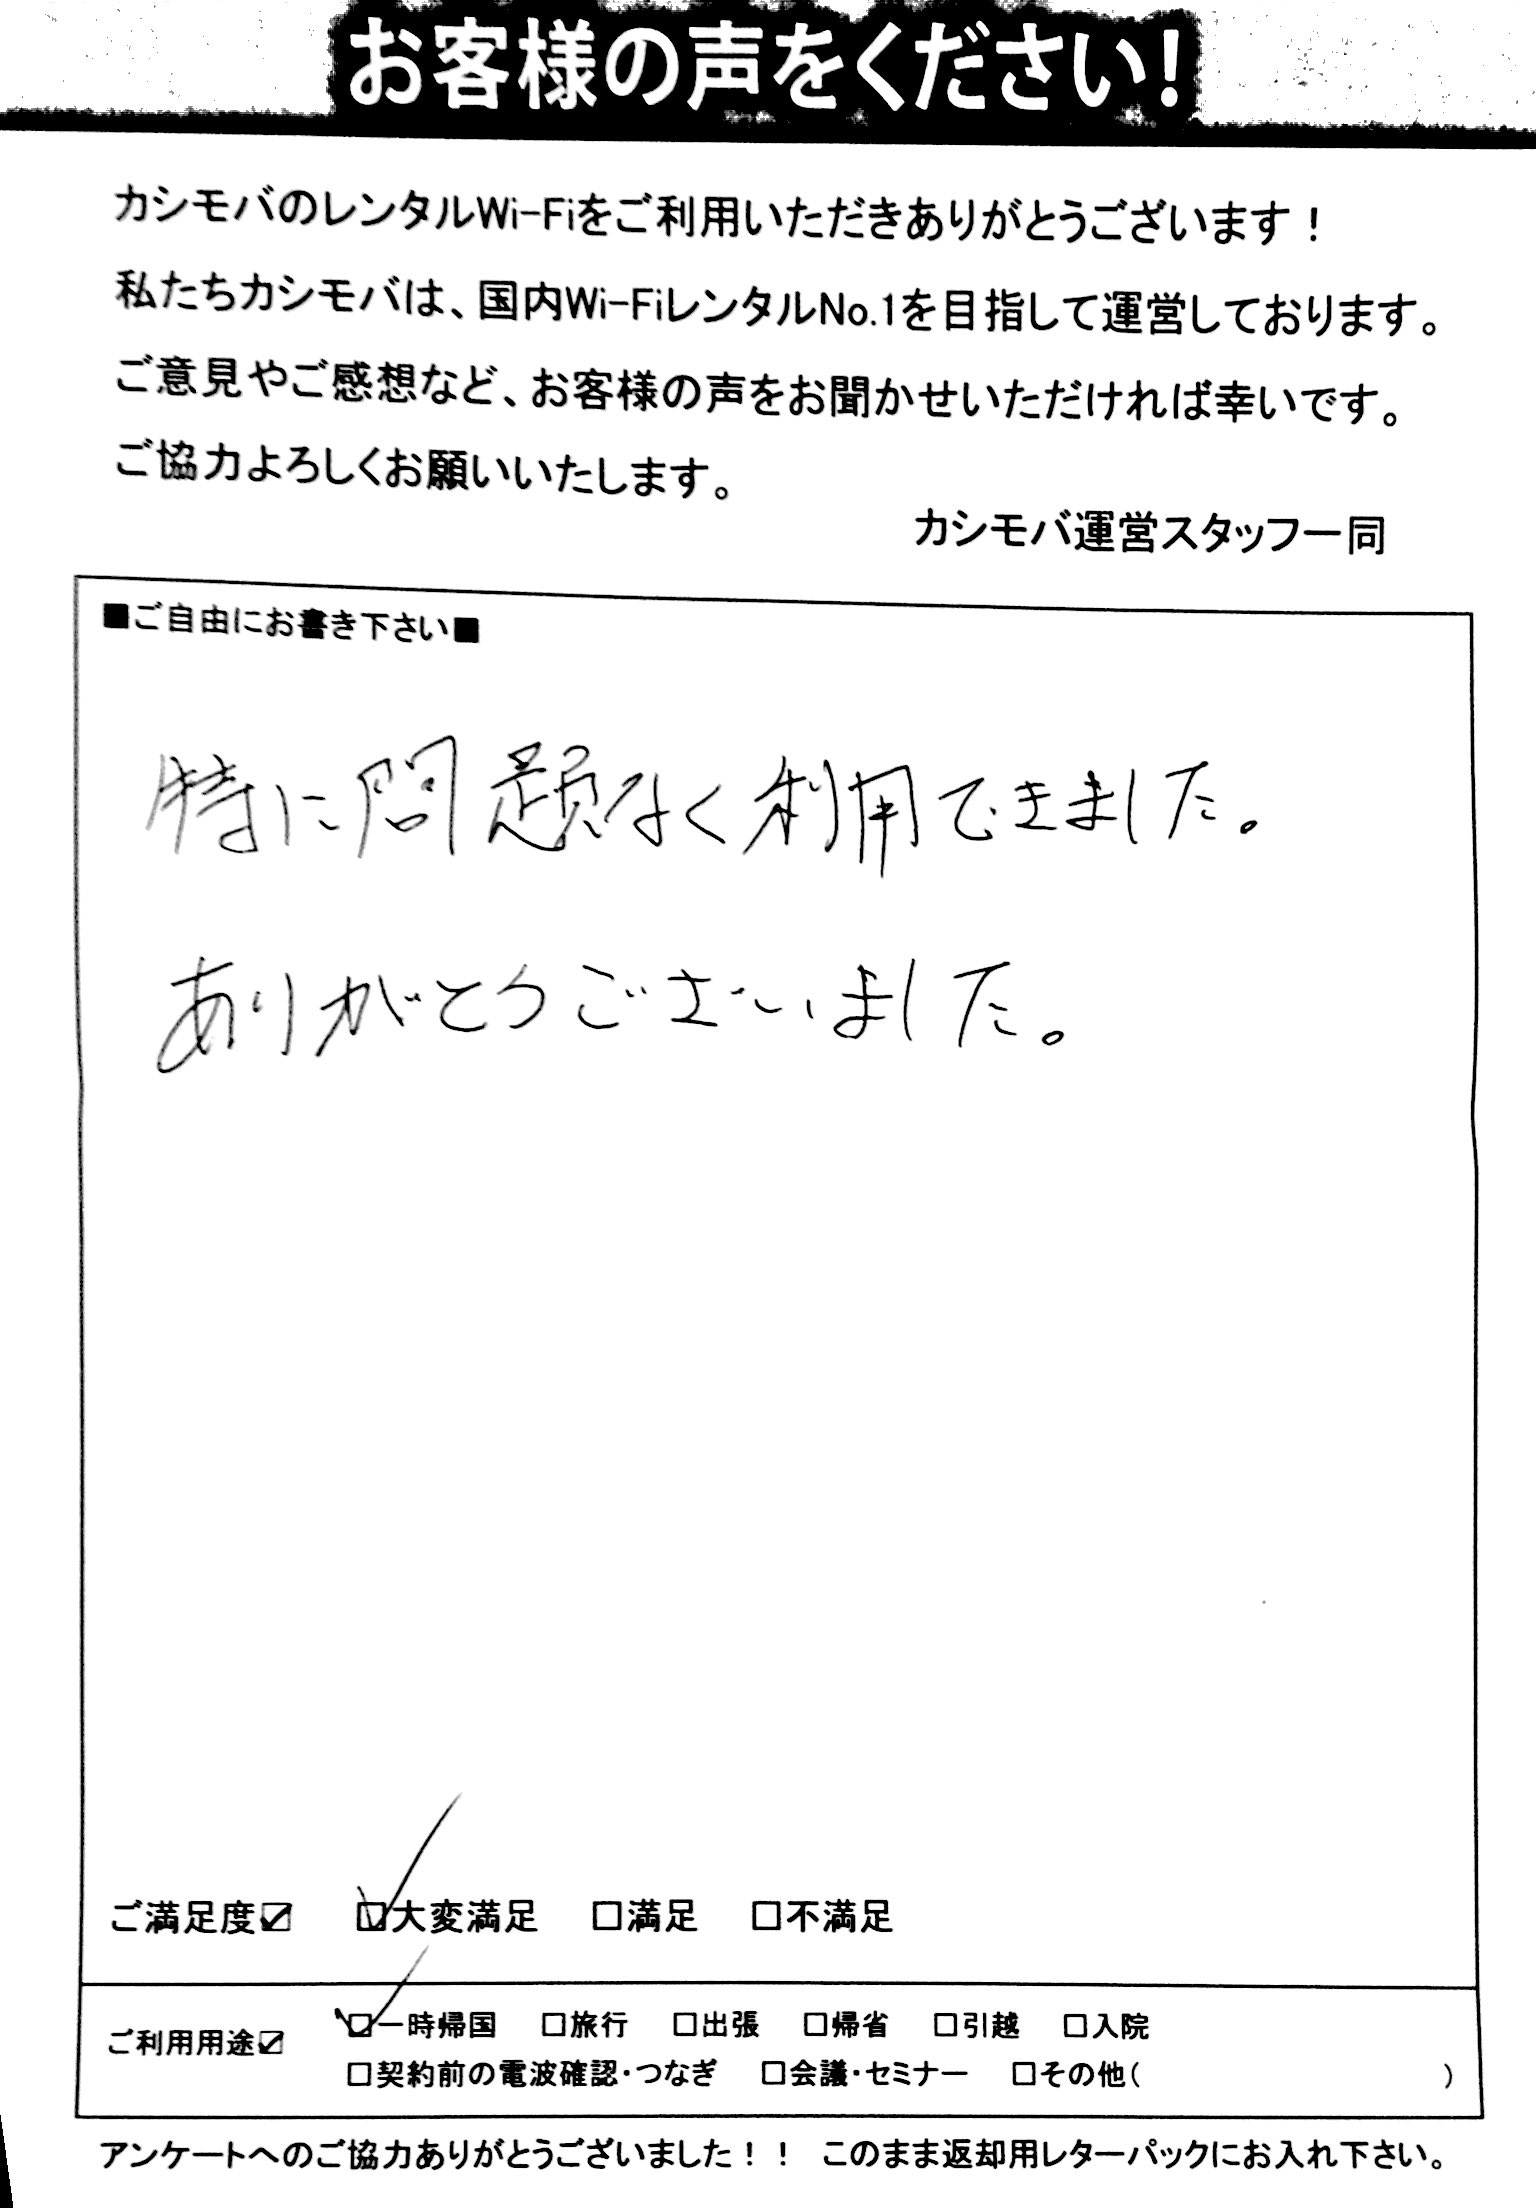 お客様の声をください!
カシモバのレンタルWi-Fiをご利用いただきありがとうございます!
私たちカシモバは、国内Wi-FiレンタルNo.1を目指して運営しております。
ご意見やご感想など、お客様の声をお聞かせいただければ幸いです。
ご協力よろしくお願いいたします。
カシモバ運営スタッフ一同
■ご自由にお書き下さい■
特に問題なく利用できました。
ありがとうございました。
ご満足度☑ ☑大変満足 □満足 □不満足
ご利用用途☑ ☑一時帰国 □旅行 □出張 □帰省 □引越 □入院
□契約前の電波確認・つなぎ □会議・セミナー □その他( )
アンケートへのご協力ありがとうございました!! このまま返却用レターパックにお入れ下さい。